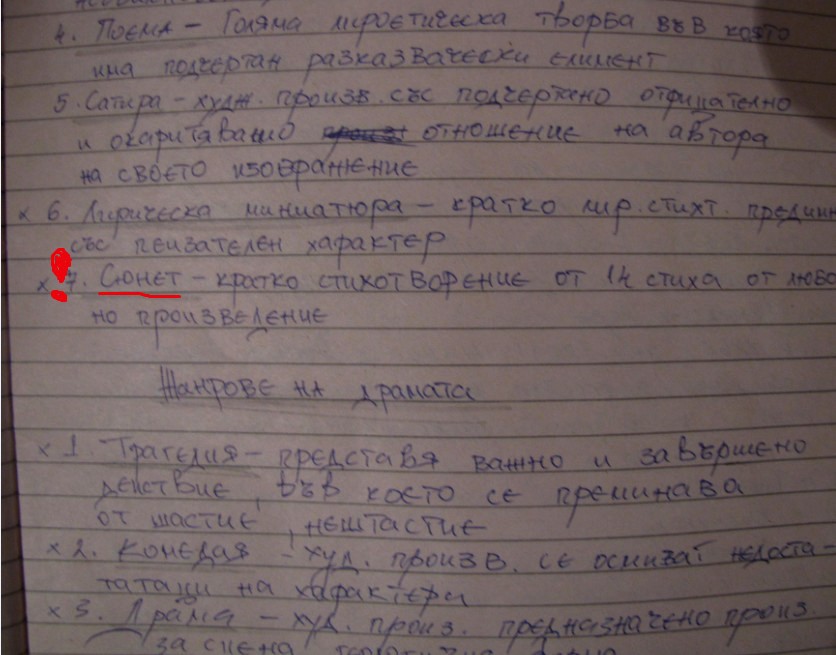 4. Поема – Голяма лироетическа творба във която
има подчертан разказвачески елимент
5. Сатира – худж. произв. със подчертано отрицателно
и окаритявашо отношение на автора
на своето изображение
х 6. Лирическа миниатюра – кратко лир. стихт. предимн
със пеизателен характер
х 7. Сюнет – кратко стихотворение от 14 стиха от любо
но произведение
Жанрове на драмата
х 1. Трагедия – представя важно и завършено
действие, във което се преминава
от шастие, нештастие
х 2. Комедая – худ. произв. се осмиват недоста-
татаци на характери
х 3. Драма – худ. произ. предназначено произ.
за сцена